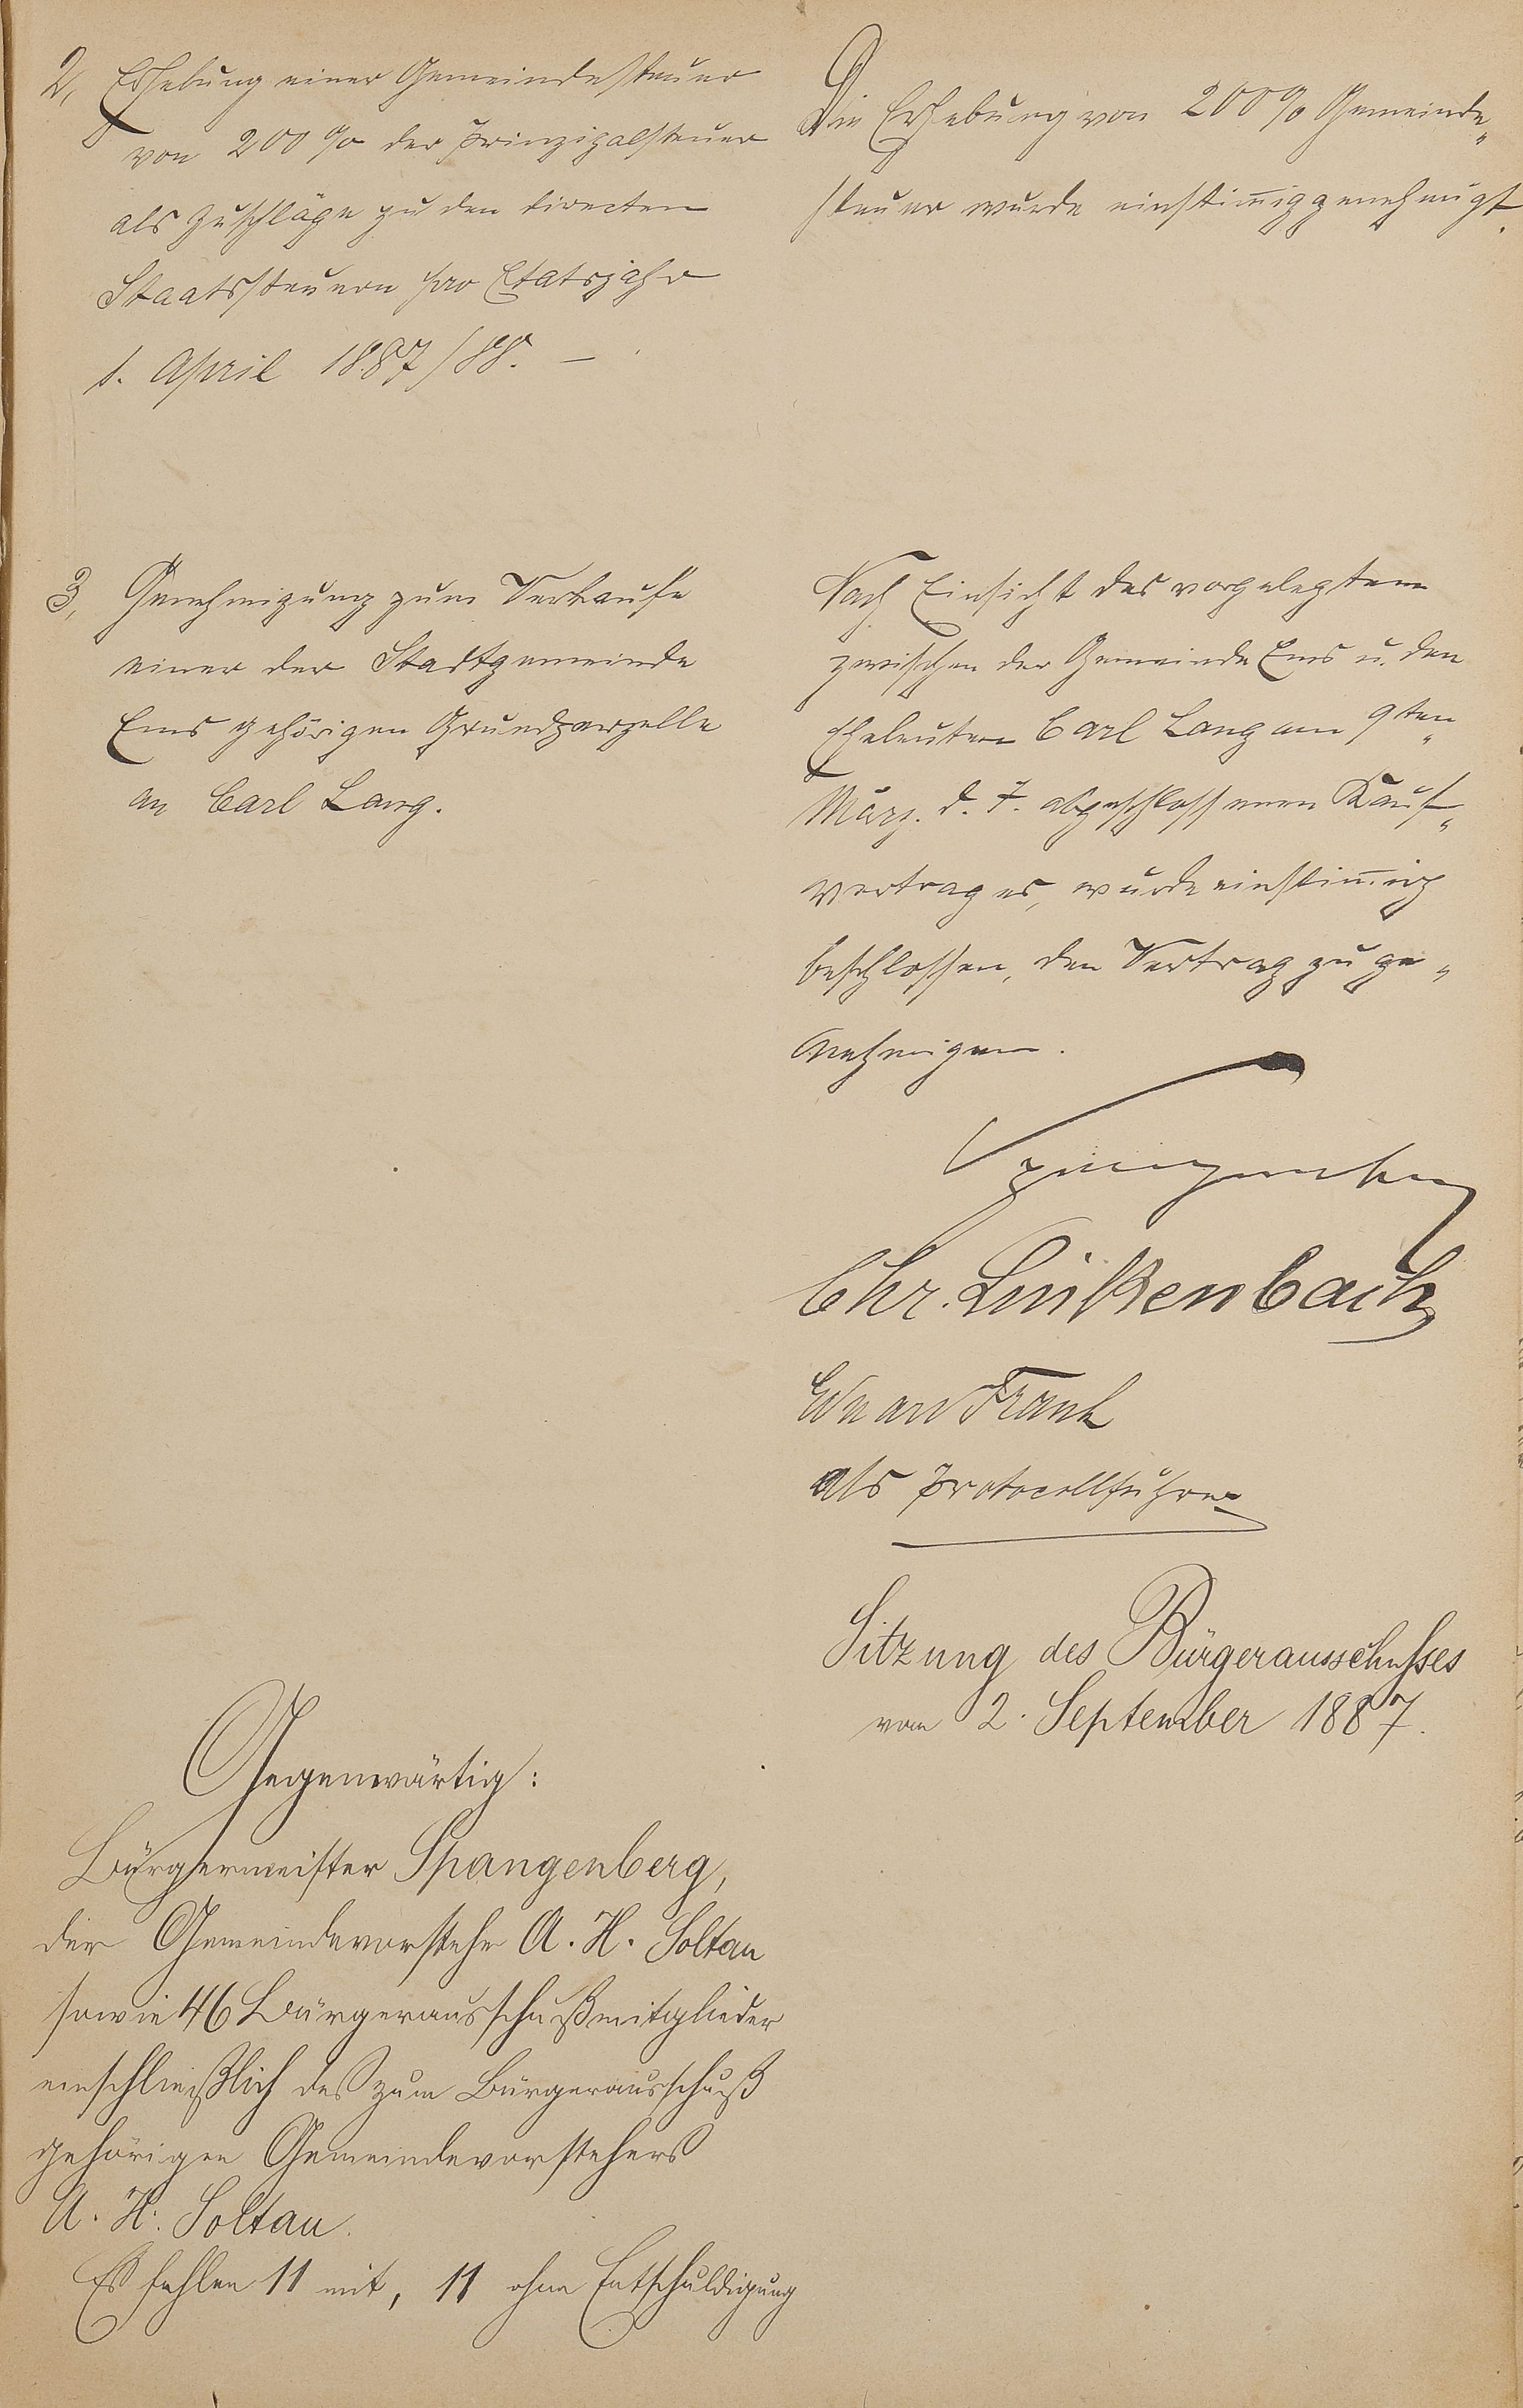 2, Erhebung einer Gemeindesteuer
von 200 % der Prinzipalsteuer
als Zuschläge zu den directen
Staatssteuern pro Etatsjahr
1. April 1887/88. —
Die Erhebung von 200 % Gemeinde„
steuer wurde einstim̅ig genehmigt.
3, Genehmigung zum Verkaufe
einer der Stadtgemeinde
Ems gehörigen Grundparzelle
an Carl Lang.
Nach Einsicht des vorgelegten
zwischen der Gemeinde Ems u. den
Eheleuten Carl Lang am 9ten„
März. d. J. abgeschlossenen Kauf„
vertrages, wurde einstim̅ig
beschlossen, den Vertrag zu ge„
nehmigen.
Spangenberg
Chr. Linkenbach
Eduard Frank
als Protocollführer
Sitzung des Bürgerausschusses
vom 2. September 1887.
Gegenwärtig:
Bürgermeister Spangenberg,
der Gemeindevorsteher A. H. Soltau
sowie 46 Bürgerausschußmitglieder
einschließlich des zum Bürgerausschuß
gehörigen Gemeindevorstehers
A. H. Soltau.
Es fehlen 11 mit, 11 ohne Entschuldigung